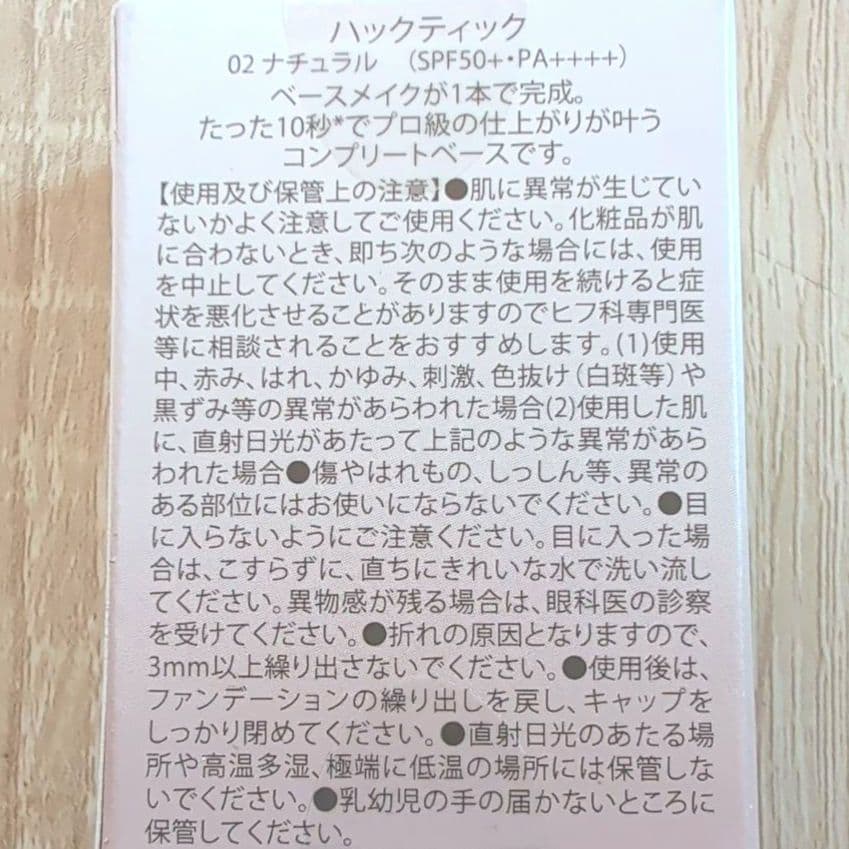 ハックティック
02 ナチュラル （SPF50+・PA++++）
ベースメイクが1本で完成。
たった10秒*でプロ級の仕上がりが叶う
コンプリートベースです。
【使用及び保管上の注意】●肌に異常が生じてい
ないかよく注意してご使用ください。化粧品が肌
に合わないとき、即ち次のような場合には、使用
を中止してください。そのまま使用を続けると症
状を悪化させることがありますのでヒフ科専門医
等に相談されることをおすすめします。(1)使用
中、赤み、はれ、かゆみ、刺激、色抜け（白斑等）や
黒ずみ等の異常があらわれた場合(2)使用した肌
に、直射日光があたって上記のような異常があら
われた場合●傷やはれもの、しっしん等、異常の
ある部位にはお使いにならないでください。●目
に入らないようにご注意ください。目に入った場
合は、こすらずに、直ちにきれいな水で洗い流し
てください。異物感が残る場合は、眼科医の診察
を受けてください。●折れの原因となりますので、
3mm以上繰り出さないでください。●使用後は、
ファンデーションの繰り出しを戻し、キャップを
しっかり閉めてください。●直射日光のあたる場
所や高温多湿、極端に低温の場所には保管しな
いでください。●乳幼児の手の届かないところに
保管してください。